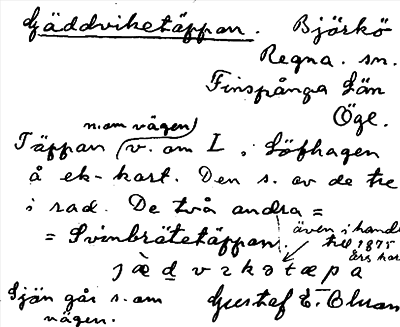 Gäddviketäppan. Björkö
Regna. sn.
Finspånga län
Ögl.
n. om vägen)
Täppan (v. om I, Löfhagen
å ek-kart. Den s. av de tre
i rad. De två andra =
= Svinbrätetäppan.
även i handl
till 1875
års kar
j à d v ı k ə t æ p a
Sjän går s. om
vägen.
Gustaf E. Olsson